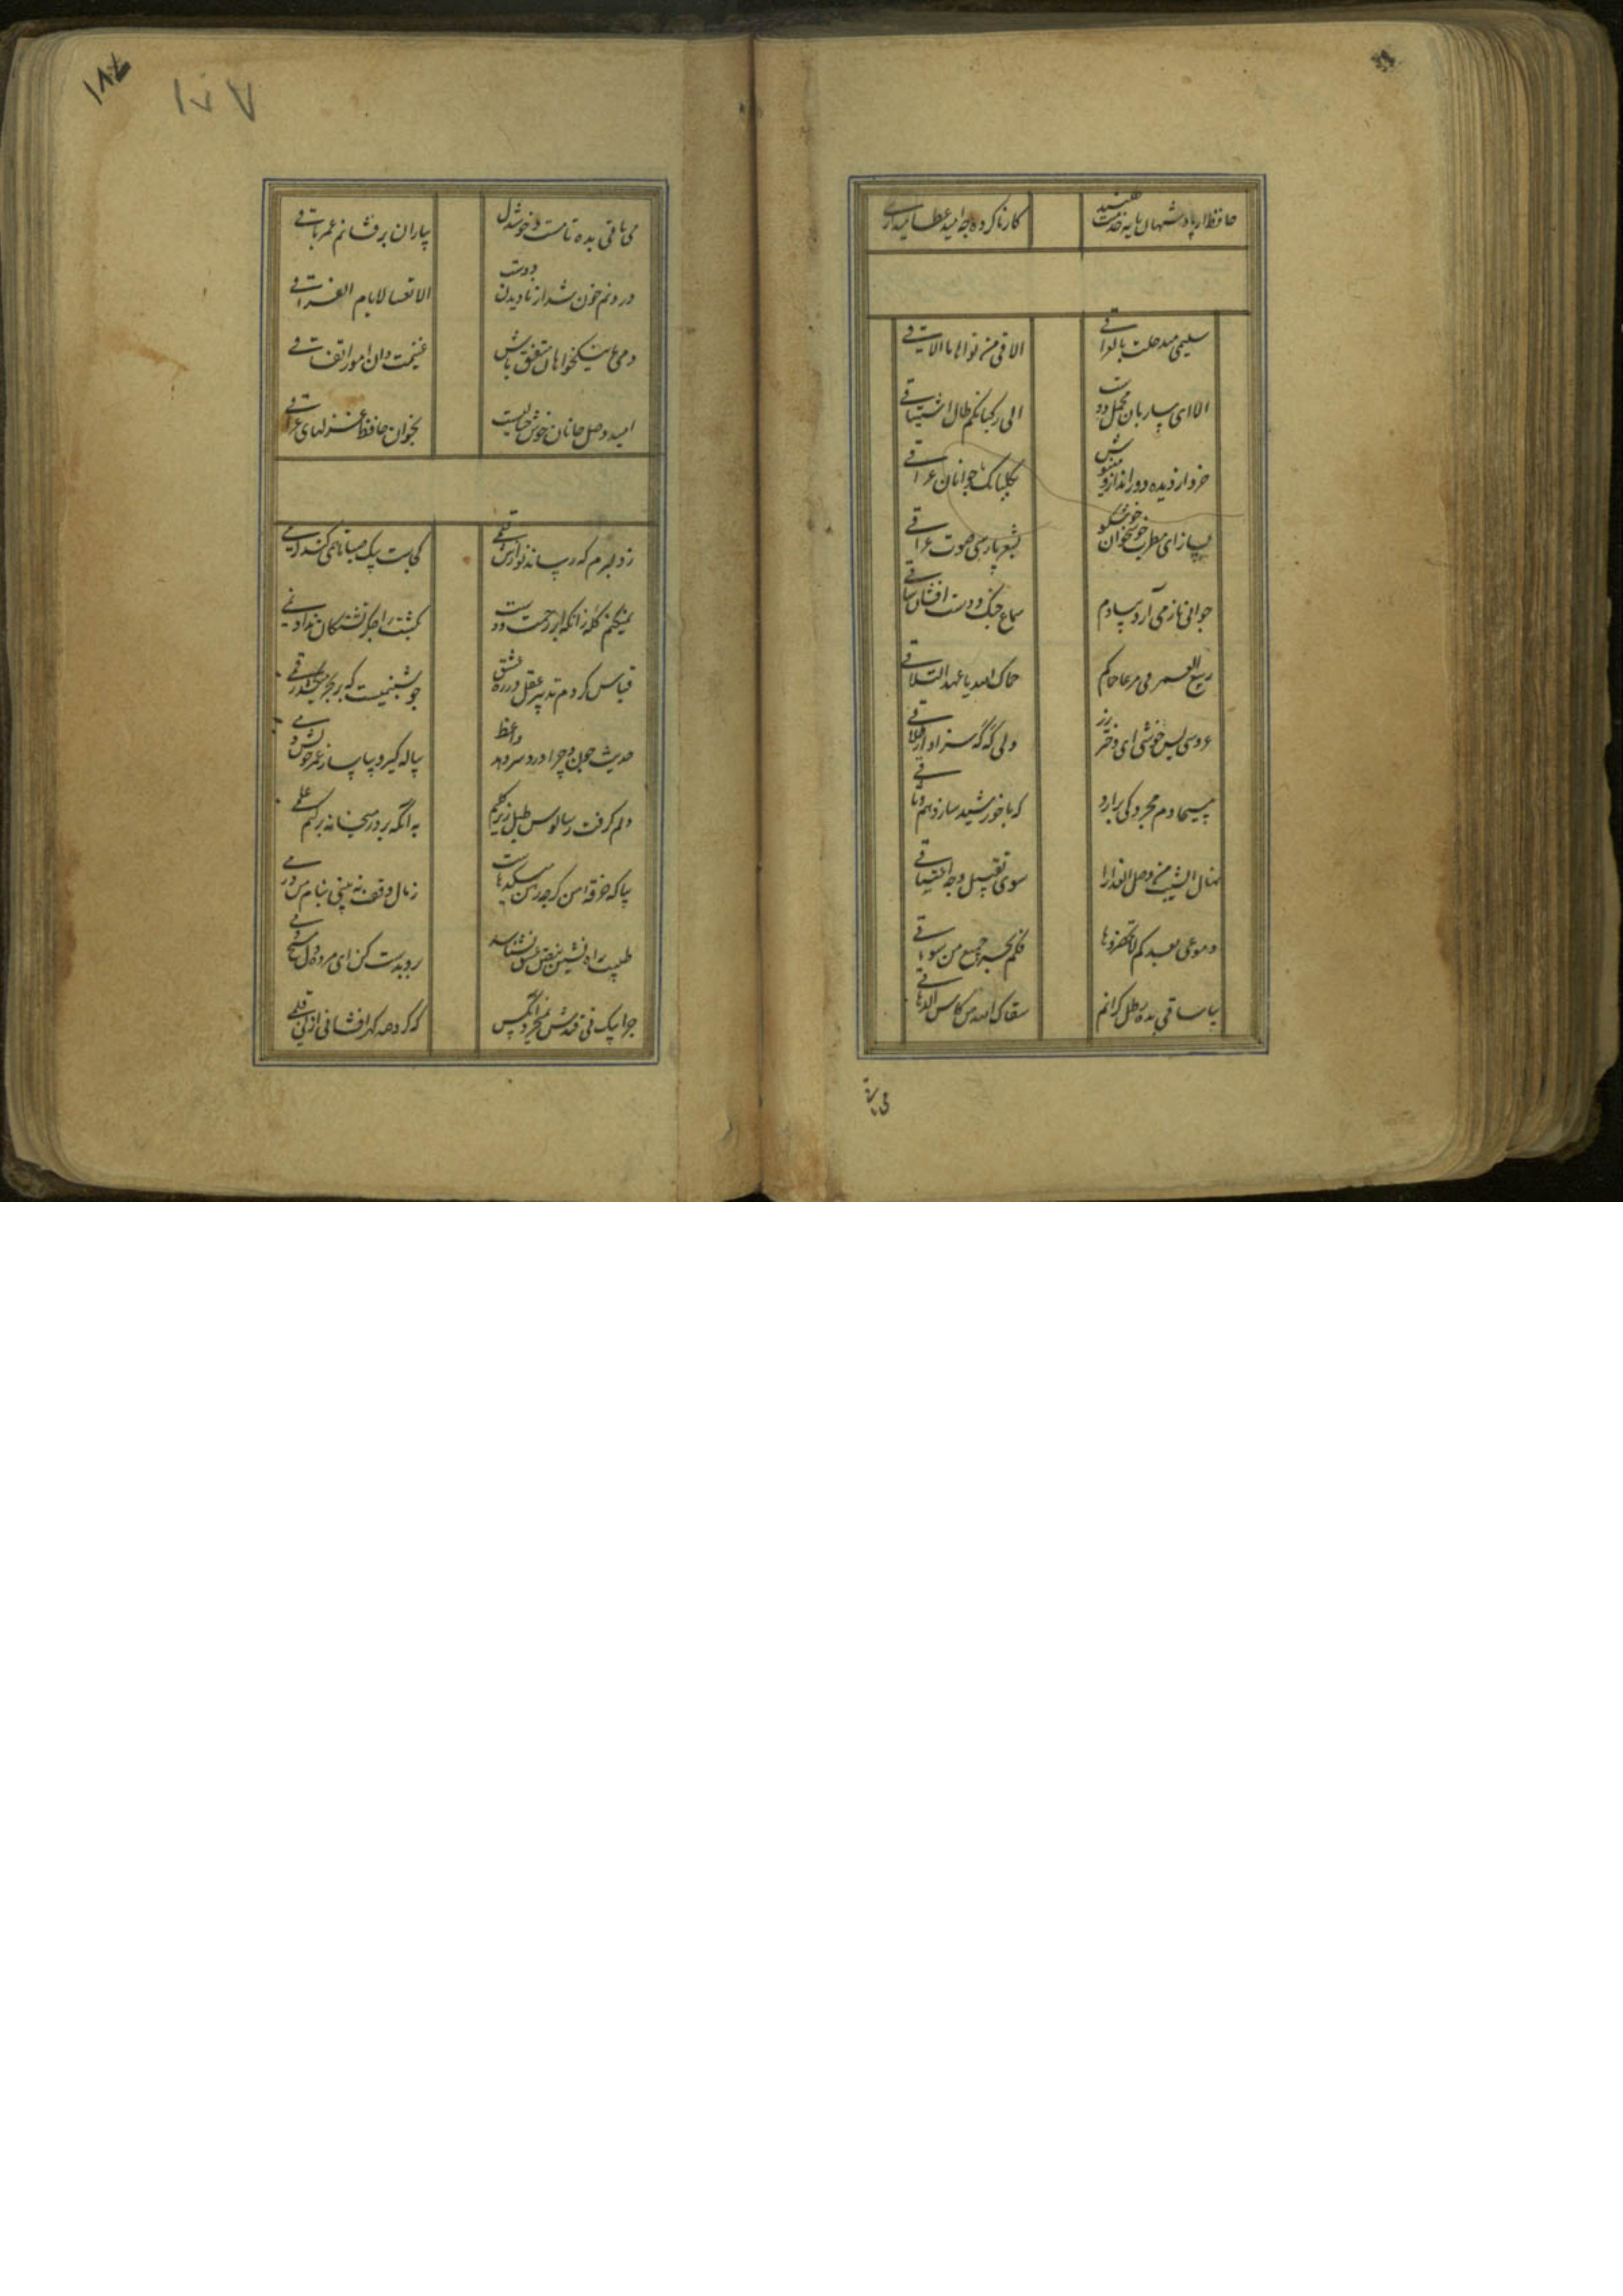 حافظ ار پادشهان پایه بخدمت طلبند کار ناکرده چه امید عطا میداری
سلیمی منذ حلت بالعراق الاقی من نواها ما الاقی
الا ای ساربان محمل دوست الی رکبانکم طال اشتیاقی
خرد در زنده رود انداز و می نوش بگلبانک جوانان عراقی
بساز ای مطرب خوشخوان خوشگو بشعر پارسی صوت عراقی
جوانی باز می آرد بیادم سماع چنک و دست افشان ساقی
ربیع العمر فی مرعا حماکم حماک الله یا عهد التلاقی
عروسی بس خوشی ای دختر رز ولی گه گه سزاوار طلاقی
مسیحا دم مجرد کی برارد که با خورشید سازد هم وثاقی
وصل العذارا سوی تقبیل وجه اعتناقی
دموعی بعدکم لا تحقروها فکم بحر جمیع من سواقی
بیا ساقی بده رطل گرانم سقاک الله من کاس الدهاقی
می باقی
می باقی بده تا مست و خوشدل بیاران بر فشانم عمر باقی
درونم خون شد از نادیدن دوست الا تعسا لایام الفراقی
دمی با نیکخواهان متفق باش غنیمت دان امور اتفاقی
امید وصل جانان خوش خیالیست بخوان حافظ غزلهای عراقی
ز دلبرم که رساند نوازش قلمی کجاست پیک صبا تا همی کند کرمی
نمیکنم گله زانکه ابر رحمت دوست بکشتزار جگر تشنگان نداد نمی
قیاس کردم تدبیر عقل در ره عشق چو شبنمیست که بر بحر میکشد رقمی
حدیث چون و چرا درد سر دهد واعظ پیاله گیر و بیاسا ز عمر خویش دمی
دلم گرفت ز سالوس و طبل زیر گلیم به آنکه بر در میخانه برکشم علمی
بیا که خرقه من گرچه رهن میکدهاست ز مال وقف نه بینی بنام من درمی
طبیب راه نشین نبض عشق نشناسد رو بدست کن ای مرده دل مسیح دمی
چرا بیک نی قندش نمیخرد آنکس که کرد صد گهر افشانی از نی قلمی